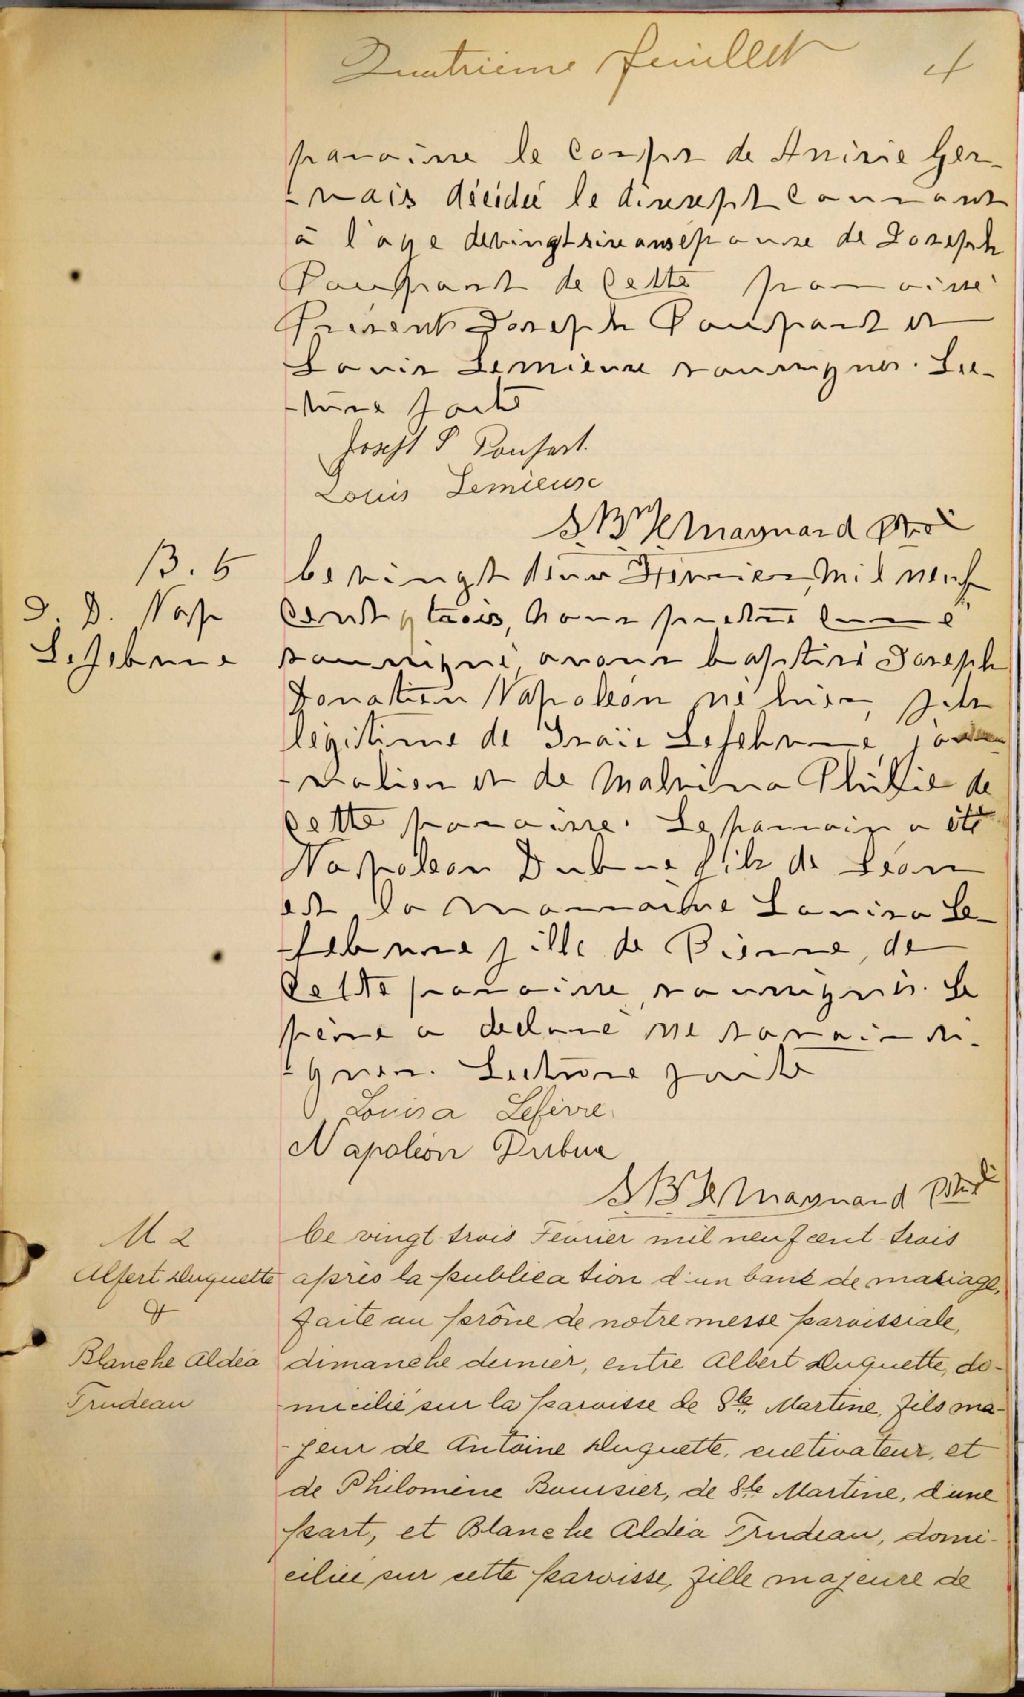 Quatrième feuillet 4
paroisse le corps de Anisie Ger-
-mais décédée le dixsept courant
à l'age de vingt six ans épouse de Joseph
Poupart de cette paroisse
Présents Joseph Poupart et
Louis Lemieux soussignés. Lec-
-ture faite
Joseph P Poupart.
Louis Lemieux
Maynard Ptre
B. 5
J. D. Nap
Lefebvre
Le vingt deux Février, mil neuf
cent trois, nous prêtre curé
soussigné, avons baptisé Joseph
Donatien Napoléon né hier, fils
légitime de Isaïe Lefebvre, jour
-nalier et de Malvina de
cette paroisse. Le parrain a été
Napoleon Dubuc fils de Léon
et la marraine Louisa Le-
-febvre fille de Pierre, de
cette paroisse, soussignés. Le
père a declaré ne savoir si-
-gner. Lecture faite
Louisa Lefevre
Napoléon Dubuc
Maynard Ptre
M 2
Alfert Duquette
&
Blanche Aldéa
Trudeau
Le vingt trois Février mil neuf cent trois
après la publication d'un banc de mariage,
faite au prône de notre messe paroissiale,
dimanche dernier, entre Albert Duquette, do-
-micilié sur la paroisse de Ste Martine, fils ma-
-jeur de Antoine Duquette, cultivateur, et
de Philomène Boursier, de Ste Martine, d'une
part, et Blanche Aldéa Trudeau, domi-
ciliée sur cette paroisse, fille majeure de